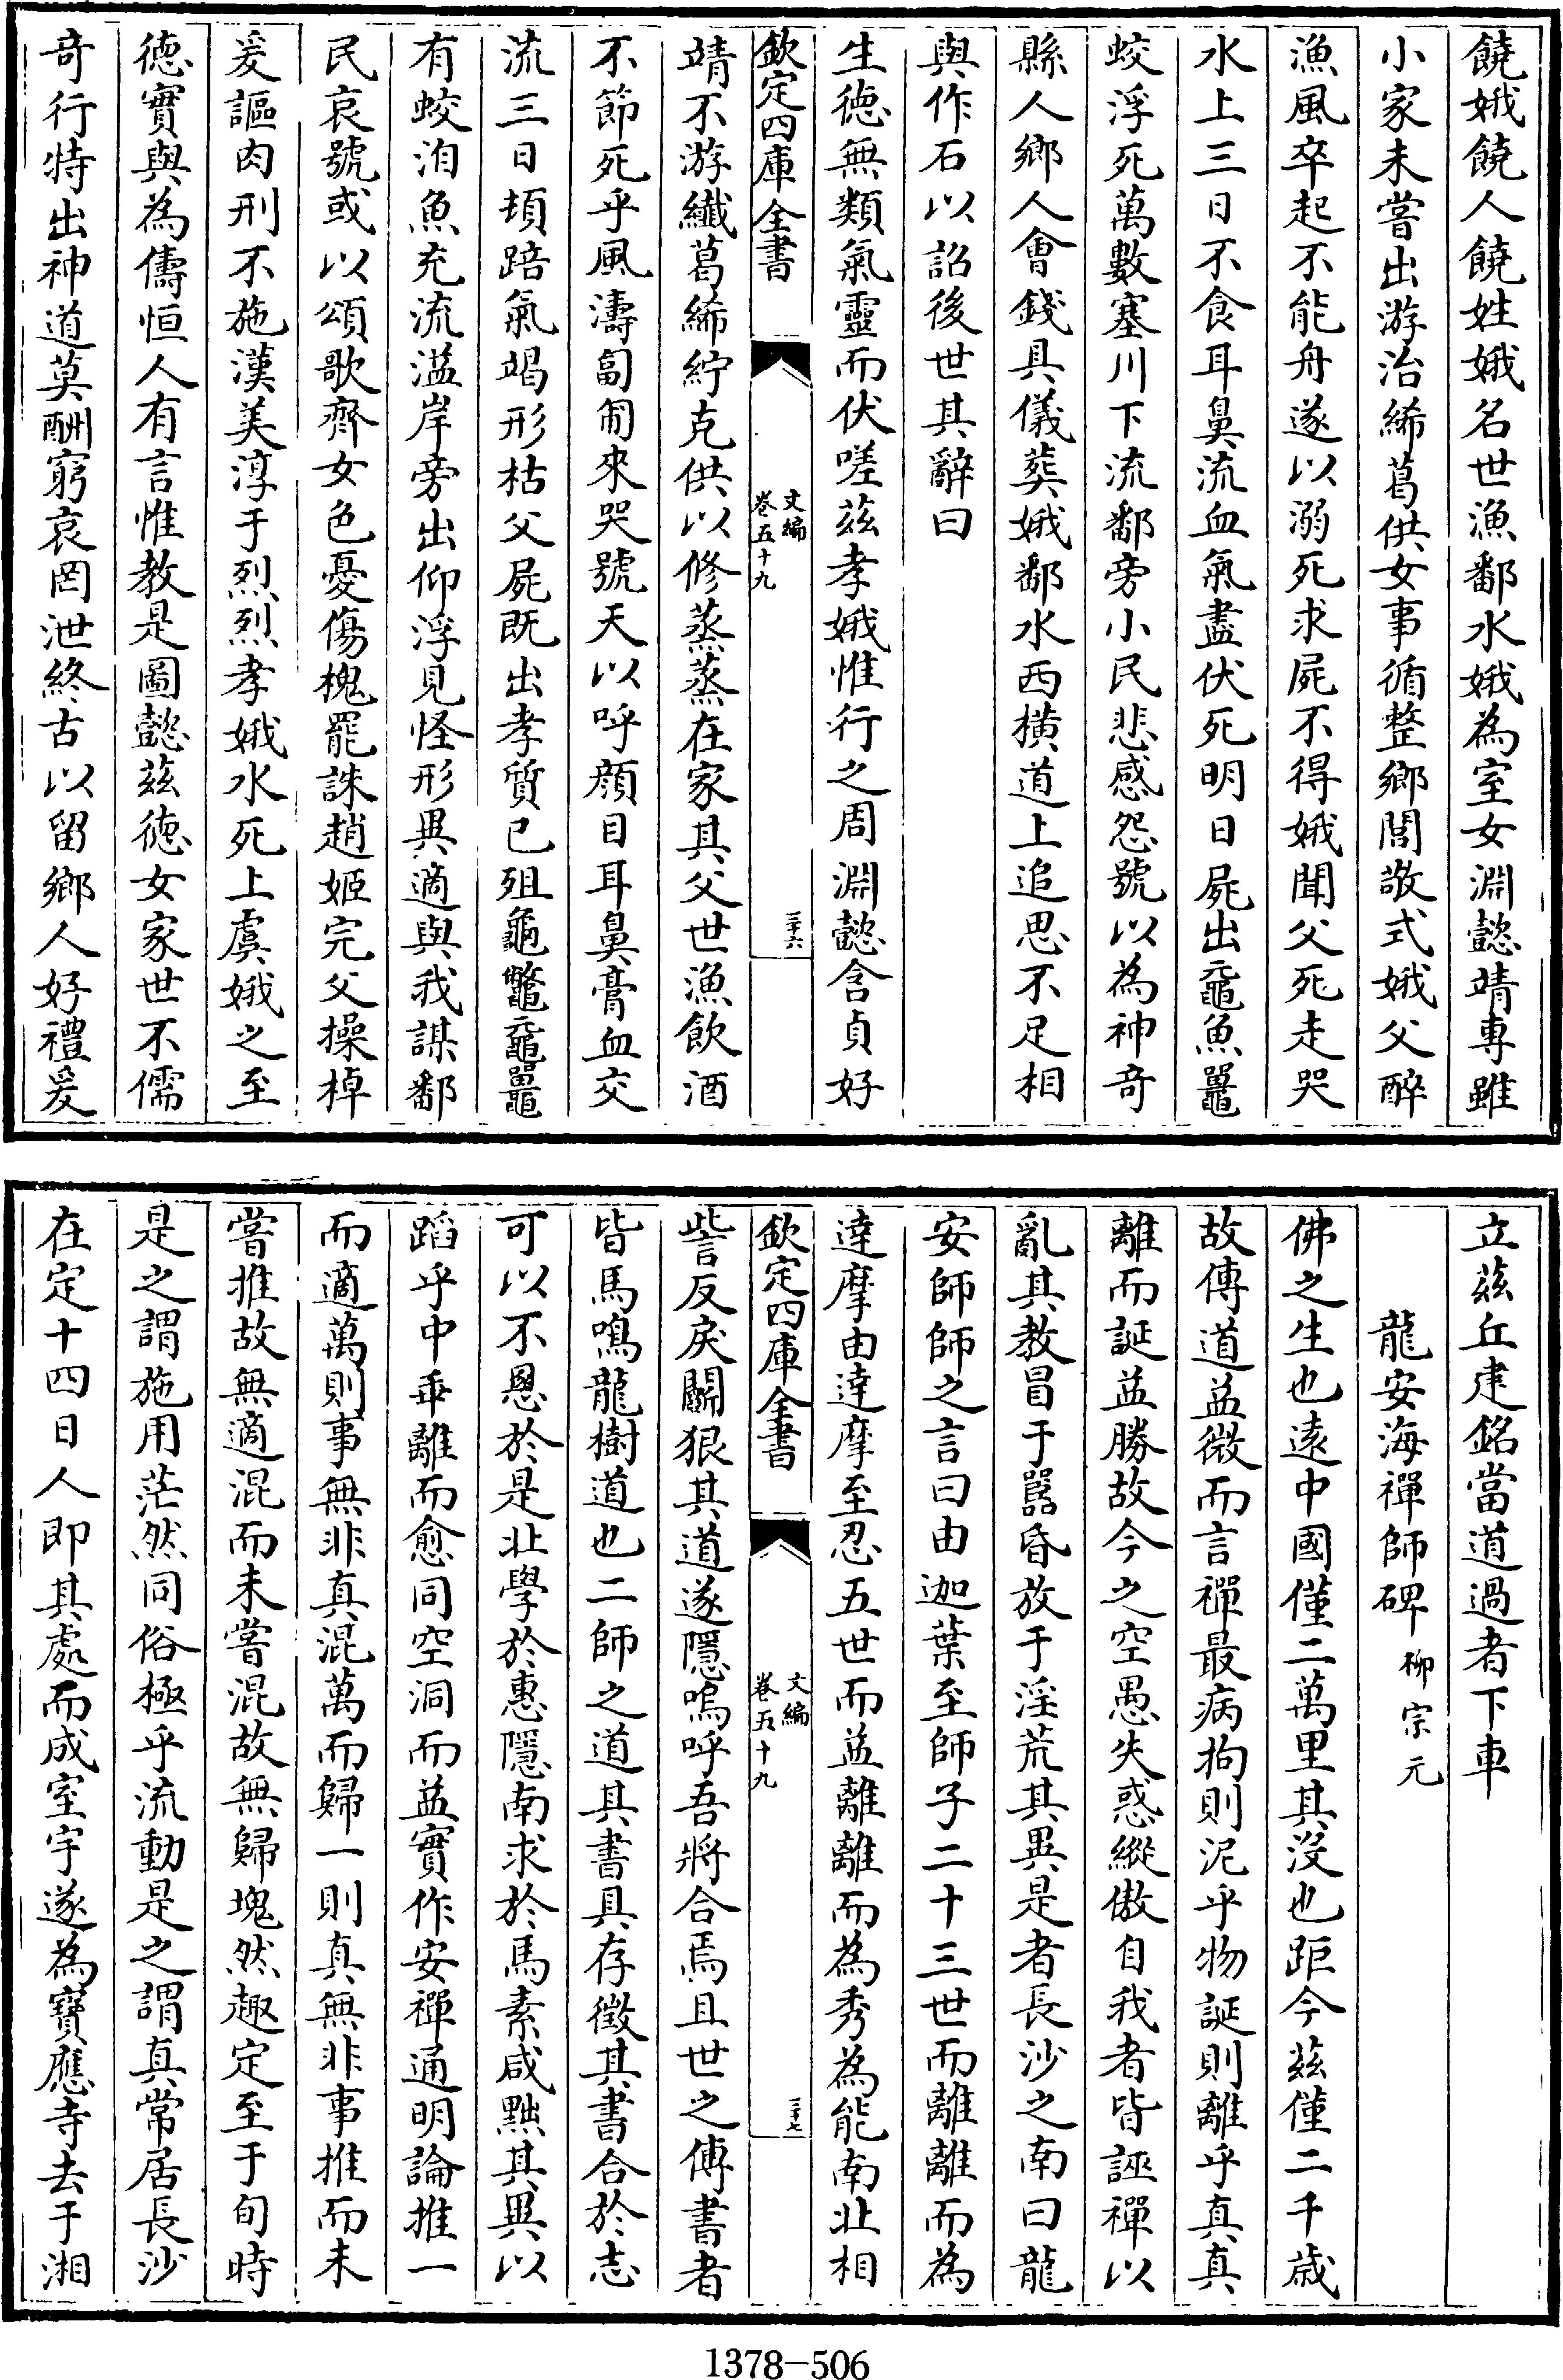 饒娥饒人饒姓娥名世漁鄱水娥為室女淵懿靖專雖
小家未嘗出游治絺葛供女事循整鄉閭敬式娥父醉
漁風卒起不能舟遂以溺死求屍不得娥聞父死走哭
水上三日不食耳鼻流血氣盡伏死明日屍出黿魚鼉
蛟浮死萬數塞川下流鄱旁小民悲感怨號以為神竒
縣人鄉人會錢具儀葬娥鄱水西橫道上追思不足相
與作石以詔後世其辭曰
生徳無類氣靈而伏嗟茲孝娥惟行之周淵懿含貞好
欽定四庫全書
文編
卷五十九
三十六
靖不游纎葛絺紵克供以修蒸蒸在家其父世漁飲酒
不節死乎風濤匐匍來哭號天以呼顔目耳鼻膏血交
流三日頓踣氣竭形枯父屍既出孝質已殂龜鼈黿鼉
有蛟洎魚充流溢岸旁出仰浮見怪形異適與我謀鄱
民哀號或以頌歌齊女色憂傷槐罷誅趙姬完父操棹
爰謳肉刑不施漢美淳于烈烈孝娥水死上虞娥之至
徳實與為儔恒人有言惟教是圖懿茲徳女家世不儒
竒行特出神道莫酬窮哀罔泄終古以留鄉人好禮爰
立茲丘建銘當道過者下車
龍安海禪師碑 柳宗元
佛之生也逺中國僅二萬里其沒也距今茲僅二千歳
故傳道益微而言禪最病拘則泥乎物誕則離乎真真
離而誕益勝故今之空愚失惑縱傲自我者皆誣禪以
亂其教冒于嚚昏放于淫荒其異是者長沙之南曰龍
安師師之言曰由迦葉至師子二十三世而離離而為
達摩由達摩至忍五世而益離離而為秀為能南北相
欽定四庫全書
文編
卷五十九
三十七
訾反戾鬭狠其道遂隱嗚呼吾將合焉且世之傳書者
皆馬鳴龍樹道也二師之道其書具存徴其書合於志
可以不慁於是北學於惠隱南求於馬素咸黜其異以
蹈乎中乖離而愈同空洞而益實作安禪通明論推一
而適萬則事無非真混萬而歸一則真無非事推而未
嘗推故無適混而未嘗混故無歸塊然趣定至于旬時
是之謂施用茫然同俗極乎流動是之謂真常居長沙
在定十四日人即其處而成室宇遂為寶應寺去于湘
1378-506